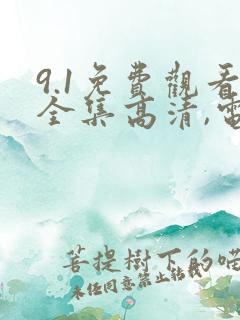 9.1免費觀看
全集高清,電
菩提樹下的喏
未经同意禁止转载